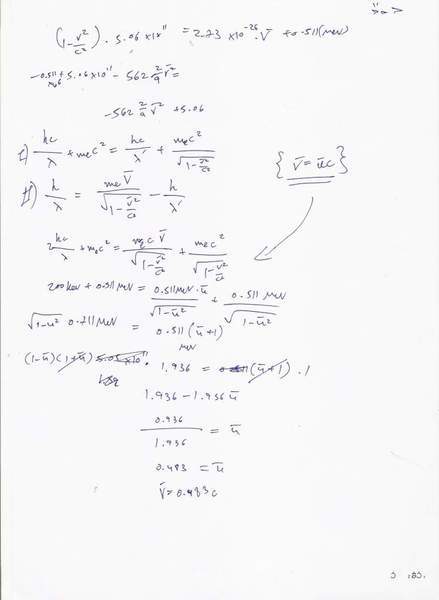 (1-v²/c²) · 5.06×10¹¹ = 2.73 ×10⁻²⁶ · v̄ + 0.511(MeV)
-0.511 + 5.06×10¹¹ - 562 2/9 v̄² =
-562 2/9 v̄² + 5.06
I) hc/λ + m₀c² = hc/λ' + m₀c²/√(1-v̄²/c²)
II) h/λ = m₀v̄/√(1-v̄²/c²) - h/λ'
{ v̄ = ūc }
2hc/λ + m₀c² = m₀c v̄/√(1-v̄²/c²) + m₀c²/√(1-v̄²/c²)
200 keV + 0.511 MeV = 0.511 MeV·ū/√(1-ū²) + 0.511 MeV/√(1-ū²)
√(1-ū²) 0.711 MeV = 0.511 (ū+1) MeV
(1-ū)(1+ū) 1.936 = (ū+1) · 1
1.936 - 1.936 ū
0.936/1.936 = ū
0.483 = ū
v̄ = 0.483 c